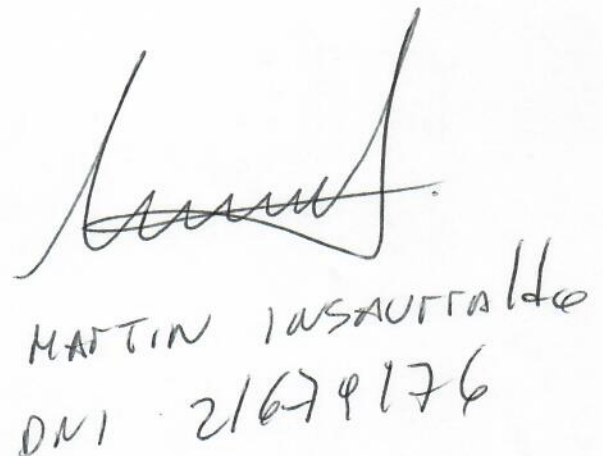 MARTIN INSAURRALDE
DNI 21679176